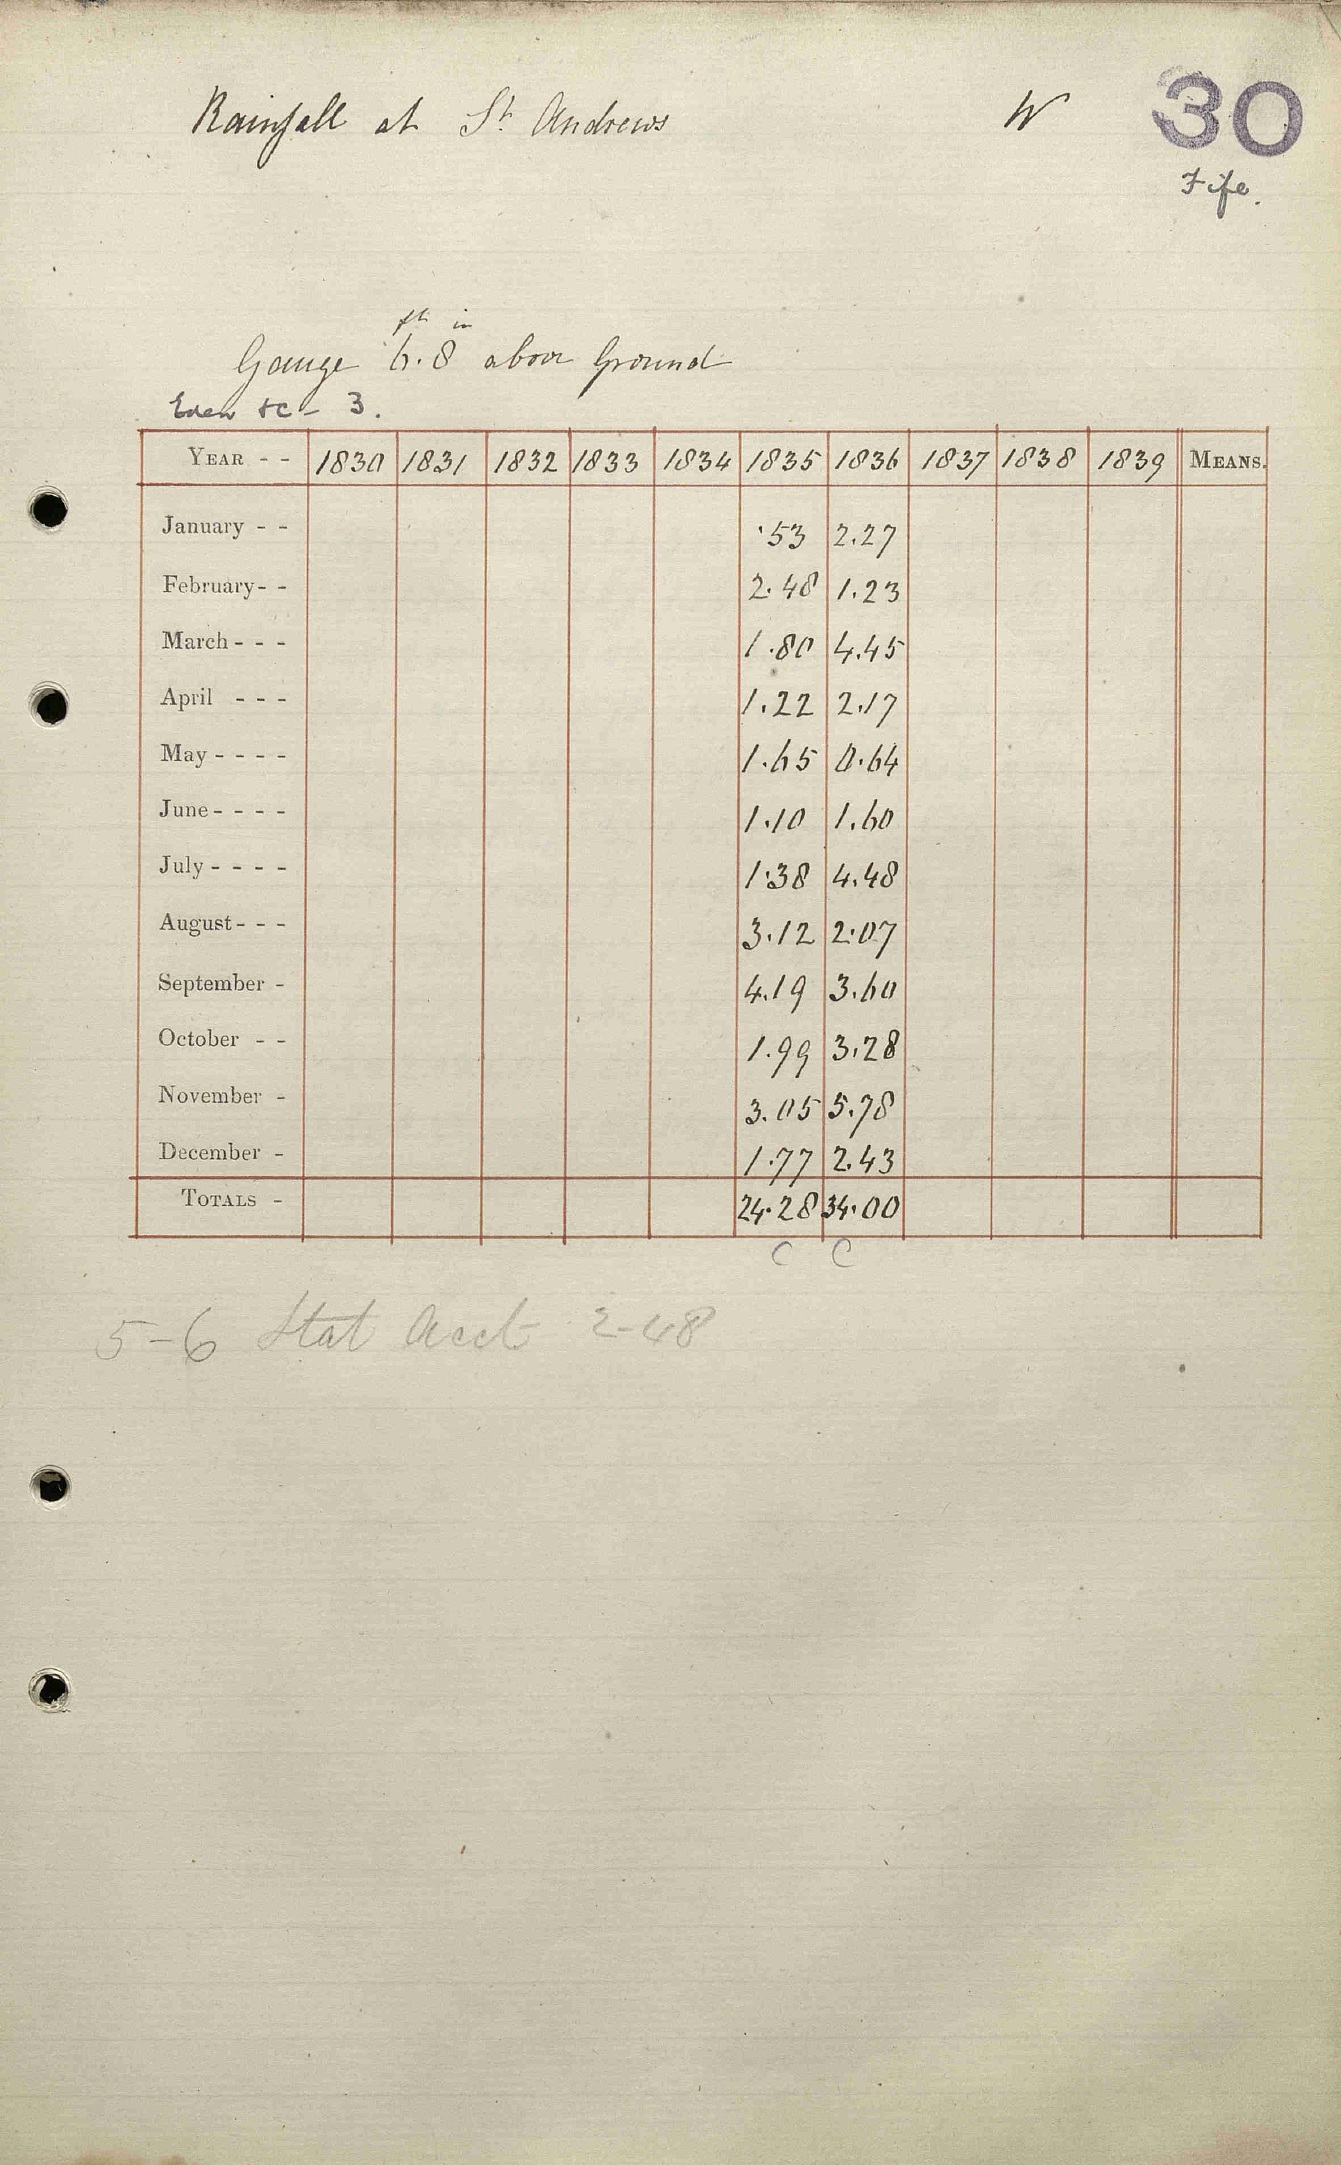 Rainfall at St. Andrews W 30
Fife.
ft in
Gauge 6.8 above Ground
Eden &c - 3.
YEAR - - 1830 1831 1832 1833 1834 1835 1836 1837 1838 1839 MEANS.
January - - .53 2.27
February - - 2.48 1.23
March - - - 1.80 4.45
April - - - 1.22 2.17
May - - - - 1.65 0.64
June - - - - 1.10 1.60
July - - - - 1.38 4.48
August - - - 3.12 2.07
September - 4.19 3.60
October - - 1.99 3.28
November - 3.05 5.78
December - 1.77 2.43
TOTALS - 24.28 34.00
C C
5-6 Stat Acct 2-48